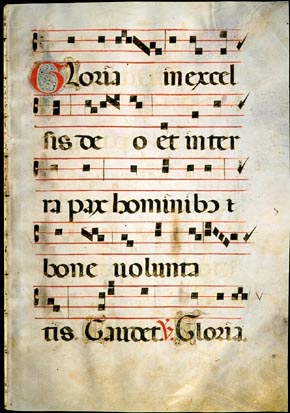 Gloria in excel
sis de o et in ter
ra pax hominibꝫ t
bone uolunta
tis. Gaudet. V. Gloria.
V